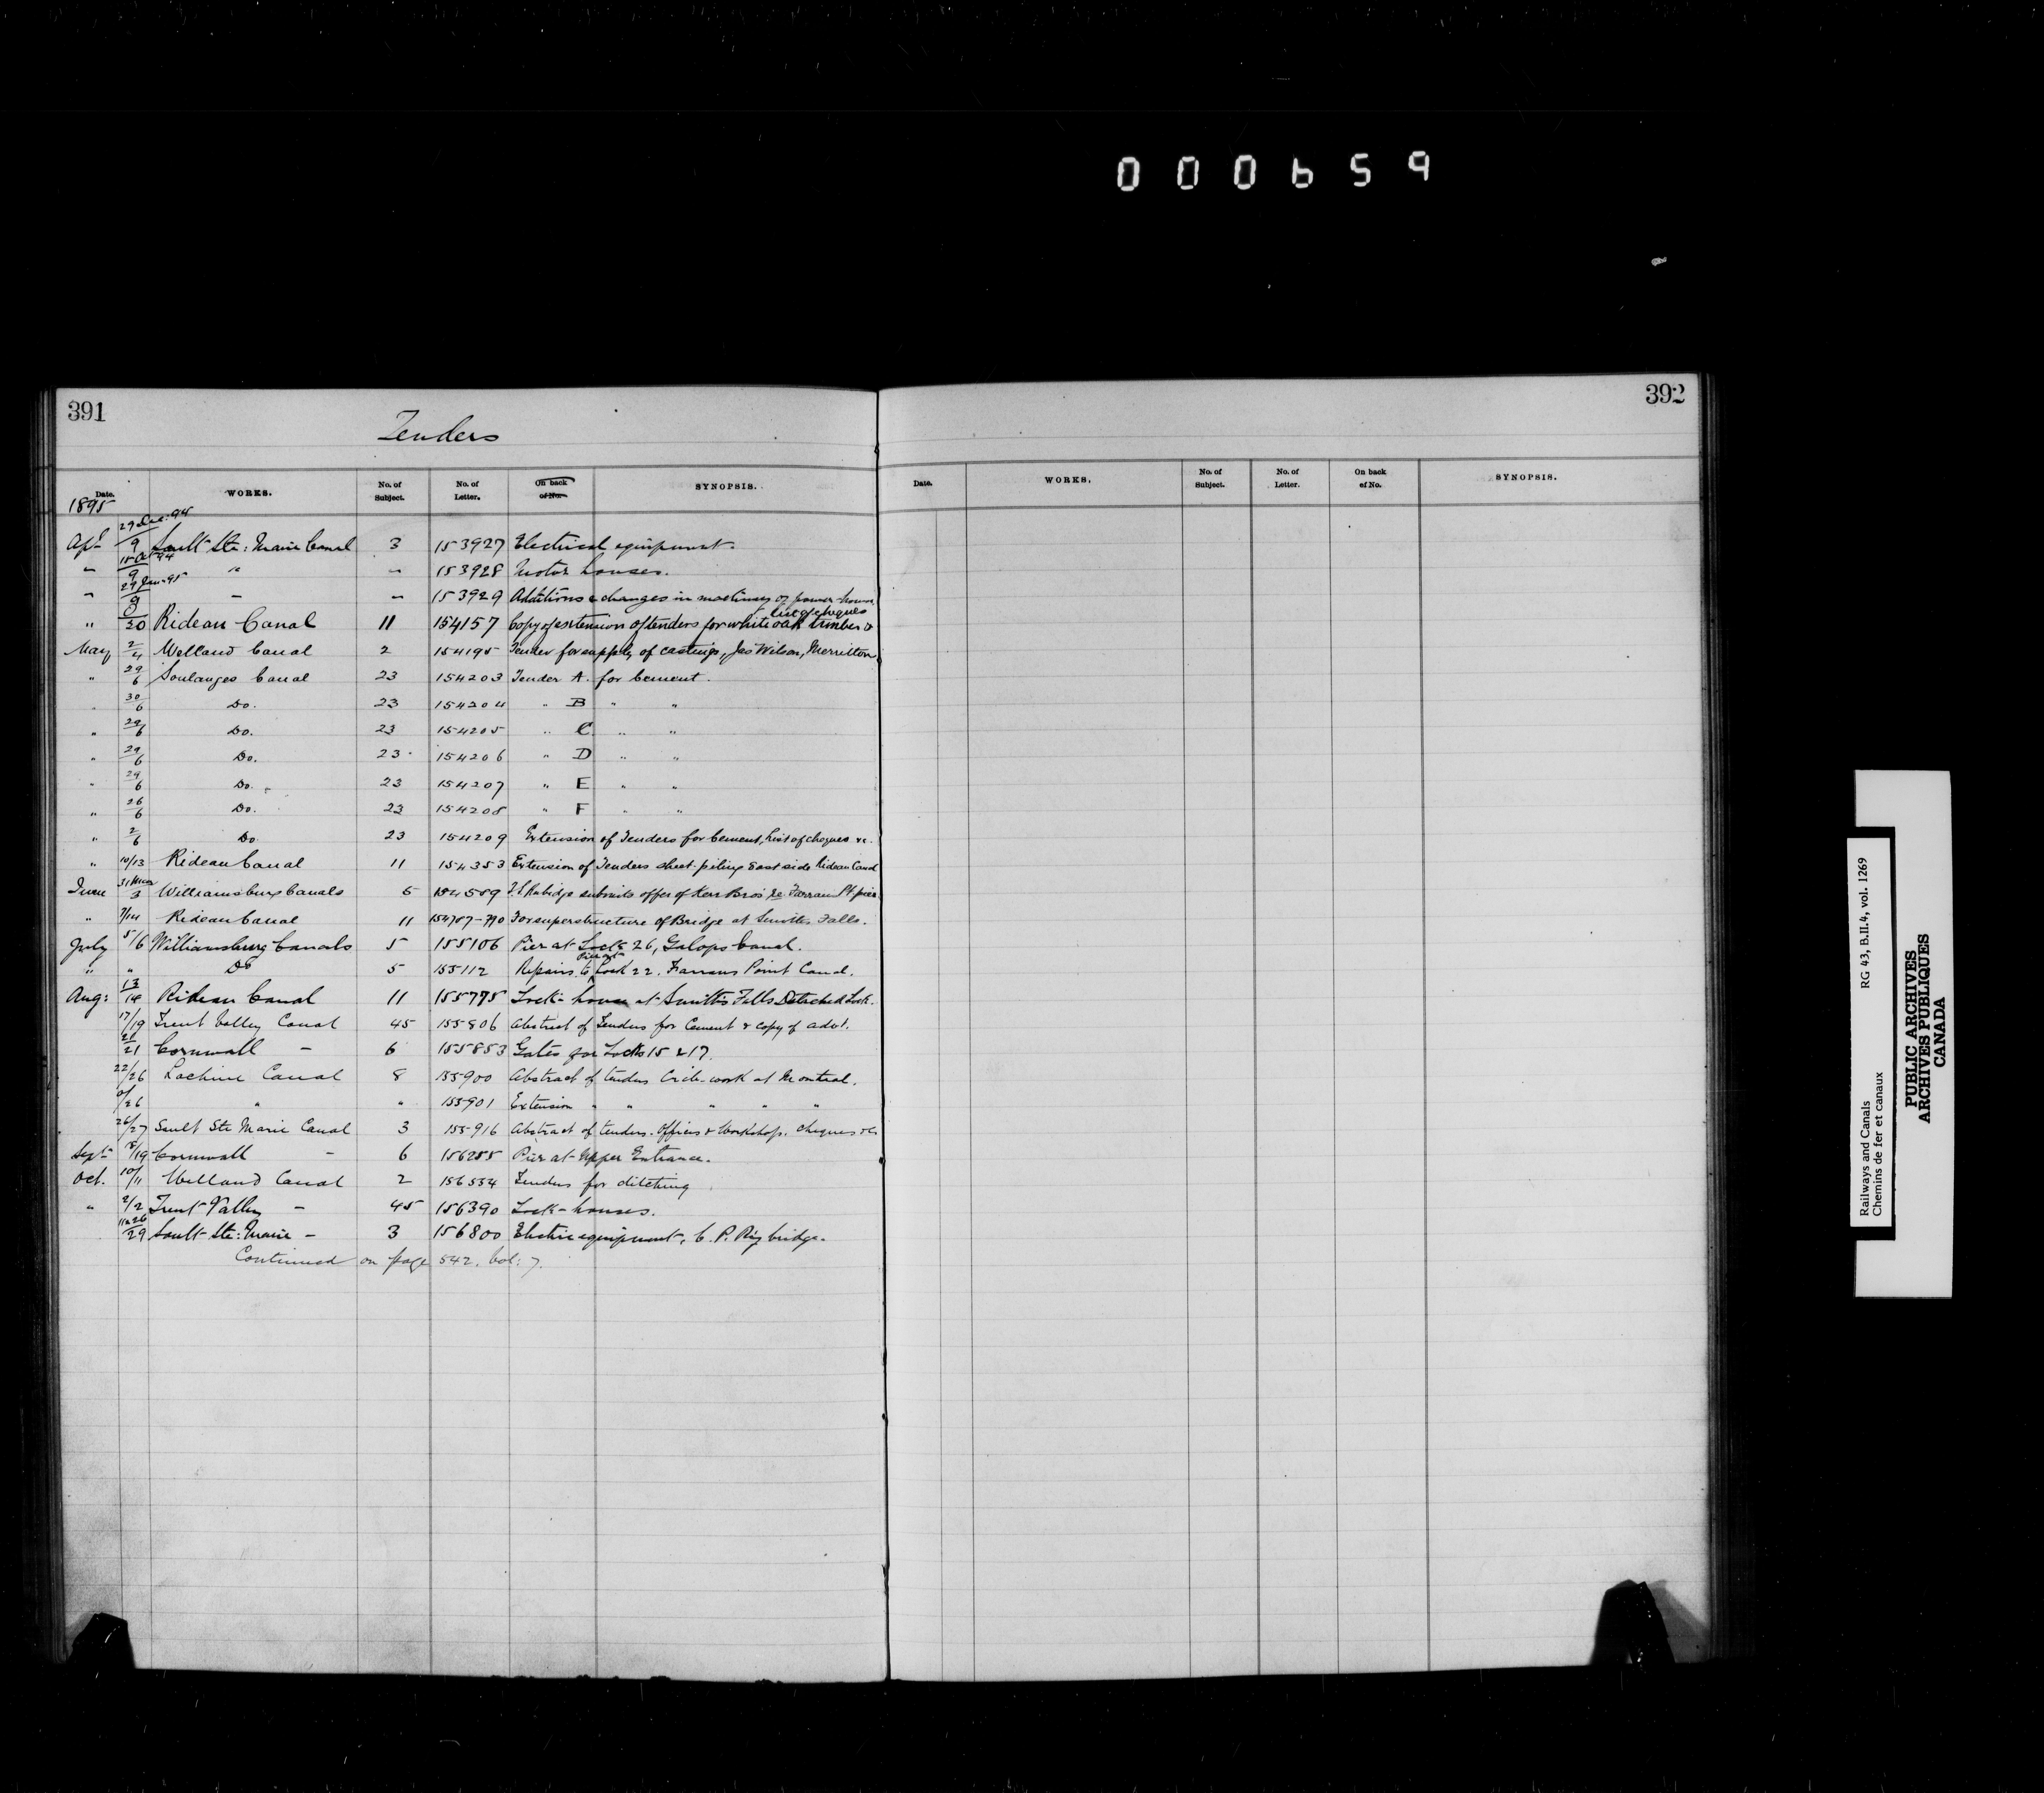 000659
391
Tenders
Date. WORKS. No. of Subject. No. of Letter. On back of No. SYNOPSIS.
1895
Apl 29 Dec. 94/9 Sault Ste: Marie Canal 3 153927 Electrical equipment.
" 15 Oct 94/9 " " 153928 Motor houses.
" 29 Jan. 95/9 " " 153929 Additions & changes in machinery of power house
" /20 Rideau Canal 11 154157 Copy of extension of tenders for white oak timber & list of cheques
May 2/4 Welland Canal 2 154195 Tender for supply of castings, Jas Wilson, Merritton
" 29/6 Soulanges Canal 23 154203 Tender A. for Cement.
" 30/6 Do. 23 154204 " B " "
" 29/6 Do. 23 154205 " C " "
" 29/6 Do. 23 154206 " D " "
" 29/6 Do. 23 154207 " E " "
" 26/6 Do. 23 154208 " F " "
" 2/6 Do 23 154209 Extension of Tenders for Cement, List of cheques &c.
" 10/13 Rideau Canal 11 154353 Extension of Tenders sheet-piling East side Rideau Canal
June 31 May/3 Williamsburg Canals 5 154589 T. S. Rubidge submits offer of Kerr Bros' re Farran Pt pier
" 7/14 Rideau Canal 11 154787-790 For superstructure of Bridge at Smiths Falls.
July 5/6 Williamsburg Canals 5 155106 Pier at Lock 26, Galops Canal.
" " Do 5 155112 Repairs to Pier at Lock 22. Farrans Point Canal.
Aug: 13/14 Rideau Canal 11 155775 Lock-house at Smith's Falls Detached Lock.
17/19 Trent Valley Canal 45 155806 Abstract of Tenders for Cement & copy of advt.
21/21 Cornwall - 6 155853 Gates for Locks 15 & 17.
22/26 Lachine Canal 8 155900 Abstract of tenders Crib-work at Montreal.
/26 " " 155901 Extension " " " " "
26/27 Sault Ste Marie Canal 3 155916 Abstract of tenders. Offices & Workshop. Cheques &c
Sept 18/19 Cornwall - 6 156255 Pier at Upper Entrance.
Oct. 10/11 Welland Canal 2 156534 Tenders for ditching
" 2/2 Trent Valley - 45 156390 Lock-houses.
/29 Sault Ste: Marie - 3 156800 Electric equipment, C. P. Ry bridge.
Continued on page 542. Vol: 7.
392
Date. WORKS. No. of Subject. No. of Letter. On back of No. SYNOPSIS.
Railways and Canals RG 43, B.II.4, vol. 1269
Chemins de fer et canaux
PUBLIC ARCHIVES
ARCHIVES PUBLIQUES
CANADA